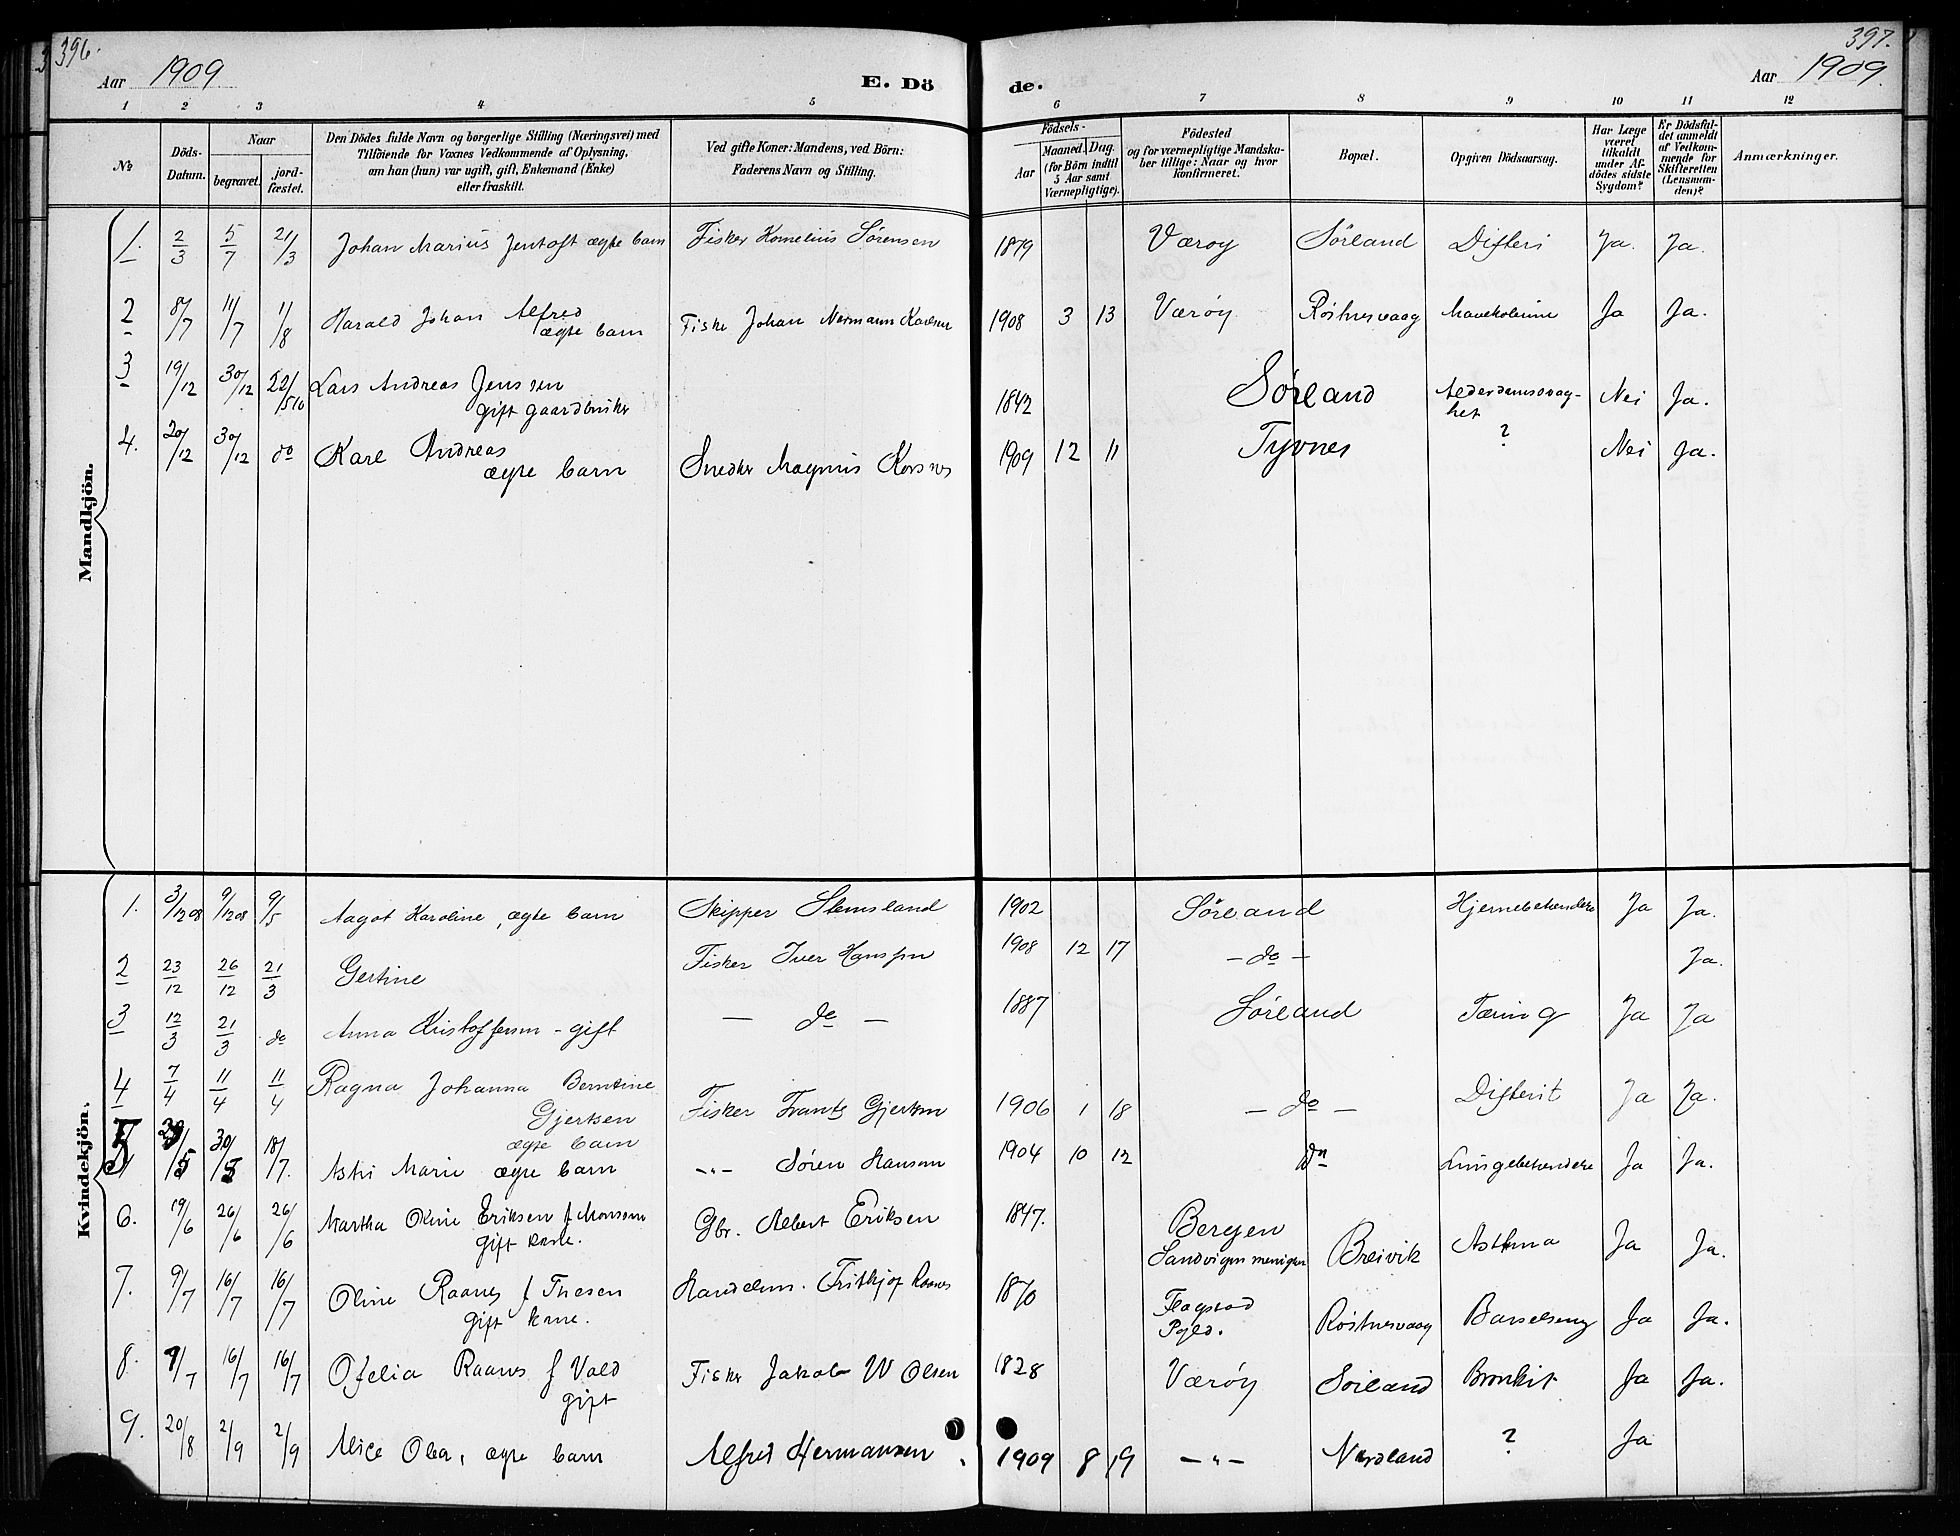 396.
397.
Aar 1909.
E. Dö
de.
Aar 1909.
1 2 3 4 5 6 7 8 9 10 11 12
No
Döds-Datum.
Naar
begravet.
jord-fæstet.
Den Dödes fulde Navn og borgerlige Stilling (Næringsvei) med
Tilföiende for Voxnes Vedkommende af Oplysning,
om han (hun) var ugift, gift, Enkemand (Enke)
eller fraskilt.
Ved gifte Koner: Mandens, ved Börn:
Faderens Navn og Stilling.
Födsels-
Aar
Maaned. Dag.
(for Börn indtil
5 Aar samt
Værnepligtige).
Födested
og for værnepligtige Mandska-
ber tillige: Naar og hvor
konfirmeret.
Bopæl.
Opgiven Dödsaarsag.
Har Læge
været
tilkaldt
under Af-
dödes sidste
Sygdom?
Er Dödsfal-
det anmeldt
af Vedkom-
mende for
Skifteretten
(Lensman-
den)?
Anmærkninger.
Mandkjön.
1. 2/3 5/7 21/3 Johan Marius Jentoft ægte barn Fisker Kornelius Sørensen 1879 Værøy Sörland Difteri Ja. Ja.
2 8/7 11/7 1/8 Harald Johan Alfred
ægte barn Fisker Johan Normann Karlsen 1908 3 13 Værøy Röstnesvaag Mavekolerine Ja Ja.
3 19/12 30/12 22/5 10 Lars Andreas Jenssen
gift gaardbruker 1842 Sørland Alderdomssvag-
het Nei Ja.
4. 20/12 30/12 do Karl Andreas
ægte barn Snedker Magnus 1909 12 11 Tyvnes ? Nei Ja.
Kvindekjön.
1. 3/12 08 9/12 08 9/5 Aagot Karoline, ægte barn Skipper Stensland 1902 Sörland Hjernebetændelse Ja Ja.
2 23/12 26/12 21/3 Gertine Fisker Iver Hanssen 1908 12 17 - do - Ja.
3 12/3 21/3 do Anna Kristoffersen - gift — do — 1887 Sörland Tæring Ja Ja
4 7/4 11/4 11/4 Ragna Johanna Berntine
Gjertsen
ægte barn Fisker Frants Gjertsen 1906 1 18 — do — Difterit Ja Ja.
5 29/5 30/5 18/7. Astri Marie ægte barn -"- Søren Hansen 1904 10 12 do Lungebetændelse Ja Ja.
6. 19/6 26/6 26/6 Martha Oline Eriksen f. Monsen
gift kone. Gbr. Albert Eriksen 1847. Bergen
Sandvigens menighed Breivik Asthma Ja Ja.
7. 9/7 16/7 16/7 Oline Raanes f Thesen
gift kone. Handelsm. Fritkjof Raanes 1870 Flagstad
Pgld. Röstnesvaag Barselseng Ja Ja.
8. 9/7 16/7 16/7 Ofelia Raanes f Vold
gift Fisker Jakob W Olsen 1828 Værøy Sörland Bronkit Ja Ja.
9. 20/8 2/9 2/9 Alice Olea, ægte barn Alfred Hermansen 1909 8 19 —"— Nordland ? Ja